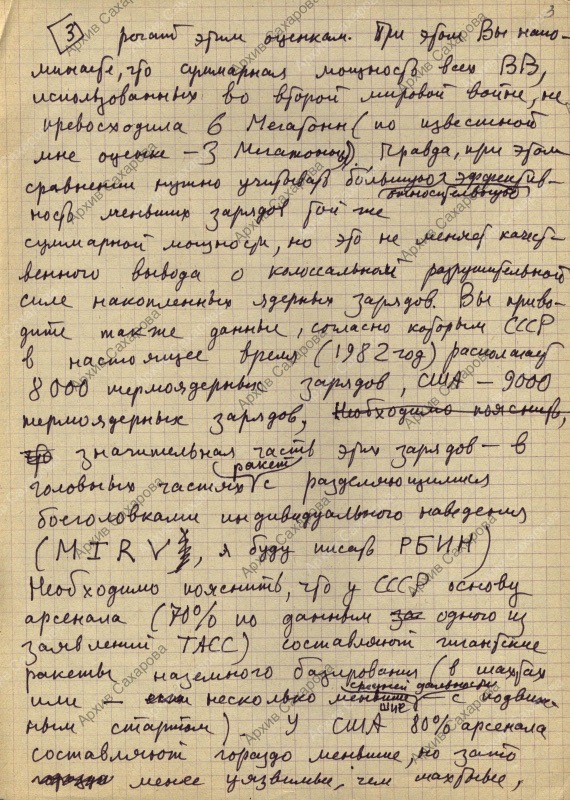 3
3 рогает этим оценкам. При этом Вы напо-
минаете, что суммарная мощность всех ВВ,
использованных во второй мировой войне, не
превосходила 6 Мегатонн (по известной
мне оценке – 3 Мегатонны). Правда, при этом
сравнении нужно учитывать большую эффектив-
относительную
ность меньших зарядов той же
суммарной мощности, но это не меняет качест-
венного вывода о колоссальной разрушительной
силе накопленных ядерных зарядов. Вы приво-
дите также данные, согласно которым СССР
в настоящее время (1982 год) располагает
8000 термоядерных зарядов, США – 9000
термоядерных зарядов, Необходимо пояснить,
что значительная часть этих зарядов – в
ракет
головных частях с разделяющимися
боеголовками индивидуального наведения
(MIRV, я буду писать РБИН)
Необходимо пояснить, что у СССР основу
арсенала (70% по данным одного из
заявлений ТАСС) составляют гигантские
ракеты наземного базирования (в шахтах
средней дальности
или – несколько меньшие – с подвиж-
ным стартом). У США 80% арсенала
составляют гораздо меньшие, но зато
гораздо менее уязвимые, чем шахтные,
Архив Сахарова